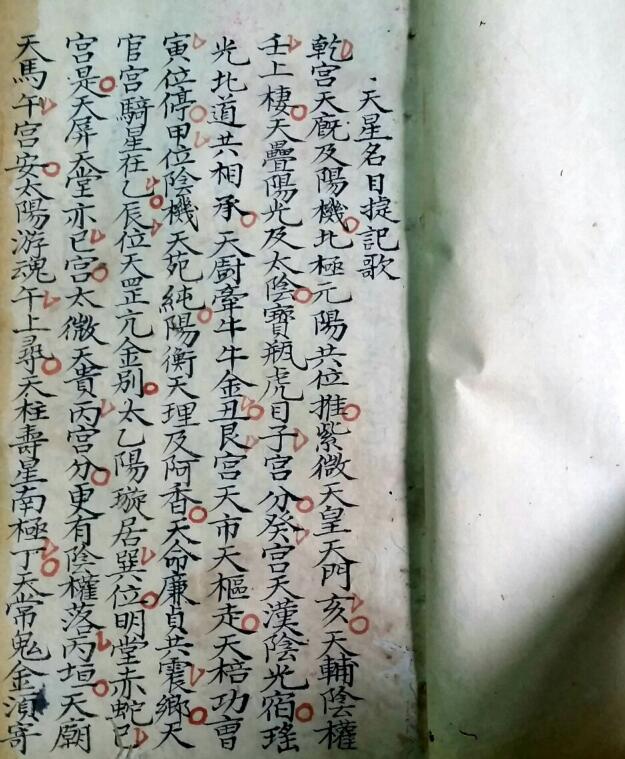 天星名目捷記歌
乾宮天厩及陽機北極元陽共位推紫微天皇天門亥天輔陰權
壬上棲天壘陽光及太陰寶瓶虎目子宮分癸宮天漢陰光宿瑤
光北道共相承天廚牽牛牛金丑艮宮天市天樞走天棓功曹
寅位停甲位陰機天苑純陽衡天理及阿香天命廉貞共震鄉天
官宮騎星在乙辰位天罡亢金別太乙陽璇居巽位明堂赤蛇巳
宮是天屏天堂亦巳宮太微天貴丙宮分更有陰權落丙垣天廟
天馬午宮安太陽游魂午上尋天柱壽星南極丁天常鬼金湏寄